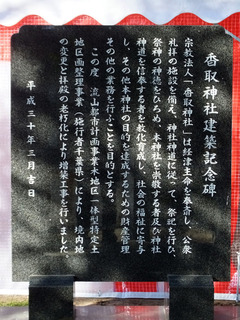 香取神社建築記念碑
宗教法人「香取神社」は経津主命を奉斎し、公衆
礼拝の施設を備え、神社神道に従って、祭祀を行ひ、
祭神の神徳をひろめ、本神社を崇敬する者及び神社
神道を信奉する者を教化育成し、社会の福祉に寄与
し、その他本神社の目的を達成するための財産管理
その他の業務を行ふことを目的とする。
この度、流山都市計画事業木地区一体型特定土
地区画整理事業(施行者千葉県)により、境内地
の変更と拝殿の老朽化により増築工事を行いました。
平成三十年三月吉日